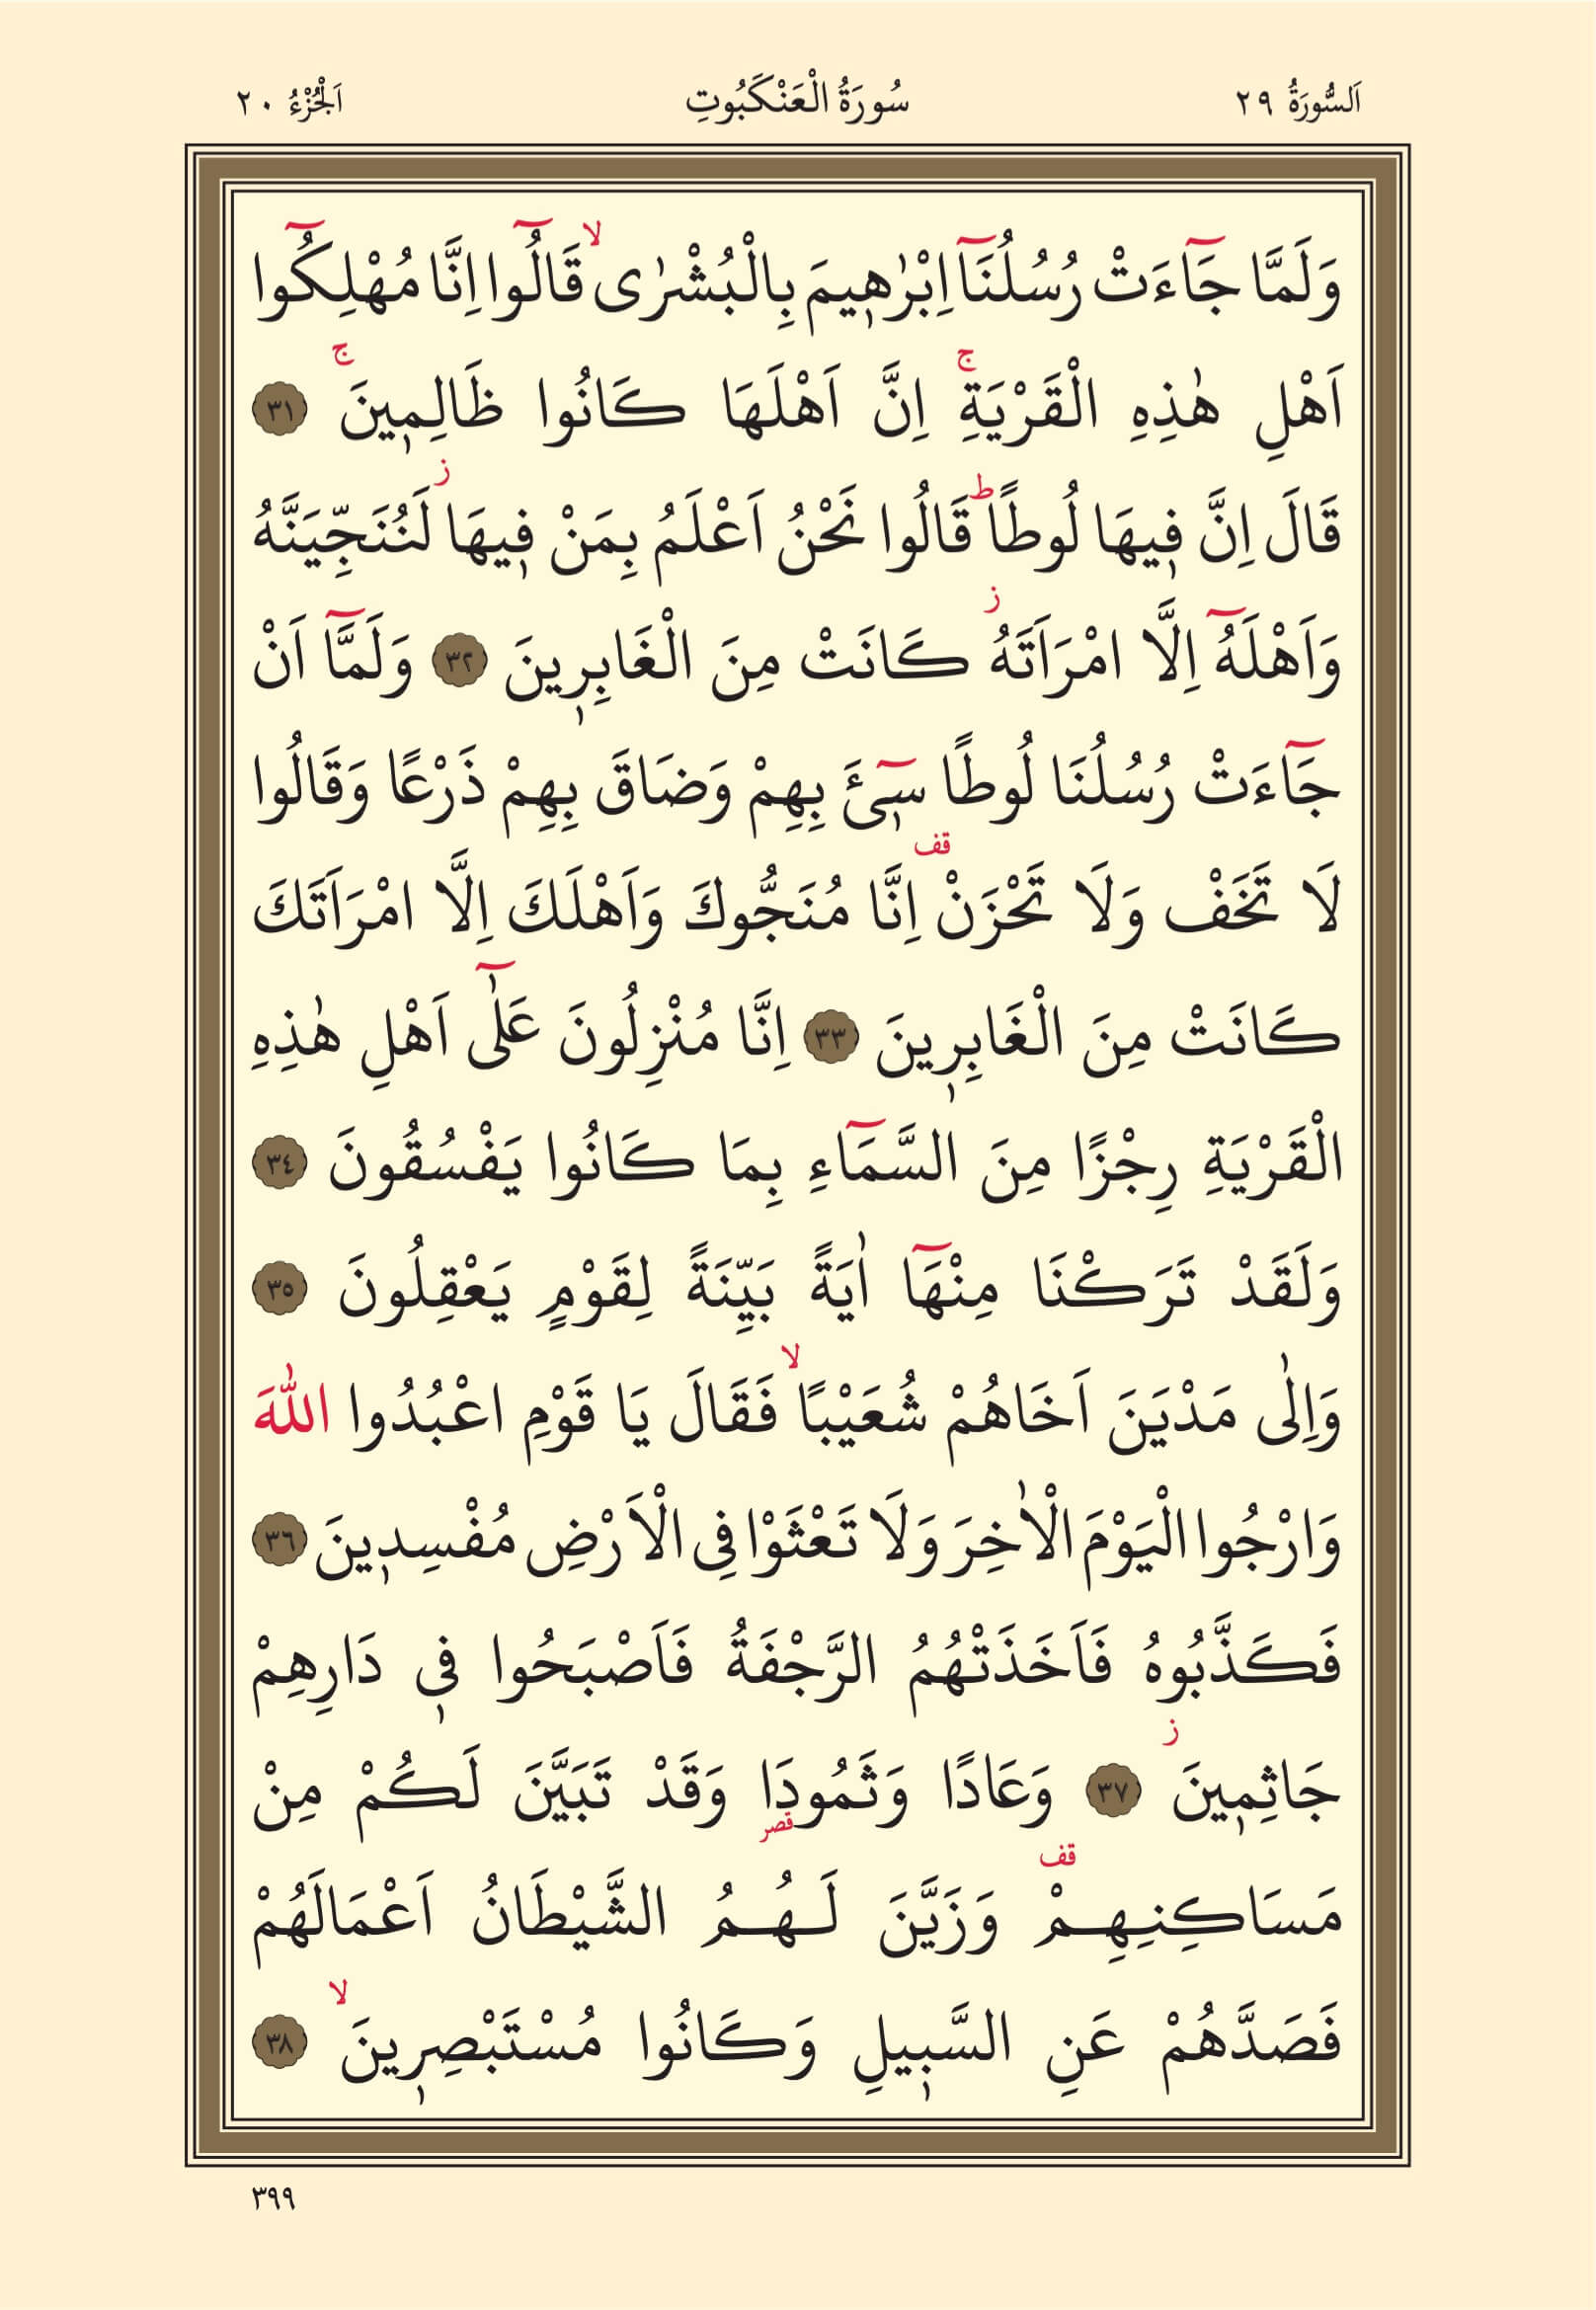 اَلسُّورَةُ ٢٩ سُورَةُ الْعَنْكَبُوتِ اَلْجُزْءُ ٢٠
وَلَمَّا جَٓاءَتْ رُسُلُنَٓا اِبْرٰه۪يمَ بِالْبُشْرٰىۙ قَالُٓوا اِنَّا مُهْلِكُٓوا
اَهْلِ هٰذِهِ الْقَرْيَةِۚ اِنَّ اَهْلَهَا كَانُوا ظَالِم۪ينَۚ ٣١
قَالَ اِنَّ ف۪يهَا لُوطًاۜ قَالُوا نَحْنُ اَعْلَمُ بِمَنْ ف۪يهَاۘ لَنُنَجِّيَنَّهُ
وَاَهْلَهُٓ اِلَّا امْرَاَتَهُۘ كَانَتْ مِنَ الْغَابِر۪ينَ ٣٢ وَلَمَّٓا اَنْ
جَٓاءَتْ رُسُلُنَا لُوطًا س۪ٓئَ بِهِمْ وَضَاقَ بِهِمْ ذَرْعًا وَقَالُوا
لَا تَخَفْ وَلَا تَحْزَنْ۠ اِنَّا مُنَجُّوكَ وَاَهْلَكَ اِلَّا امْرَاَتَكَ
كَانَتْ مِنَ الْغَابِر۪ينَ ٣٣ اِنَّا مُنْزِلُونَ عَلٰٓى اَهْلِ هٰذِهِ
الْقَرْيَةِ رِجْزًا مِنَ السَّمَٓاءِ بِمَا كَانُوا يَفْسُقُونَ ٣٤
وَلَقَدْ تَرَكْنَا مِنْهَٓا اٰيَةً بَيِّنَةً لِقَوْمٍ يَعْقِلُونَ ٣٥
وَاِلٰى مَدْيَنَ اَخَاهُمْ شُعَيْبًاۙ فَقَالَ يَا قَوْمِ اعْبُدُوا اللّٰهَ
وَارْجُوا الْيَوْمَ الْاٰخِرَ وَلَا تَعْثَوْا فِى الْاَرْضِ مُفْسِد۪ينَ ٣٦
فَكَذَّبُوهُ فَاَخَذَتْهُمُ الرَّجْفَةُ فَاَصْبَحُوا ف۪ى دَارِهِمْ
جَاثِم۪ينَۘ ٣٧ وَعَادًا وَثَمُودَا۬ وَقَدْ تَبَيَّنَ لَكُمْ مِنْ
مَسَاكِنِهِمْ۠ وَزَيَّنَ لَهُمُ الشَّيْطَانُ اَعْمَالَهُمْ
فَصَدَّهُمْ عَنِ السَّب۪يلِ وَكَانُوا مُسْتَبْصِر۪ينَۙ ٣٨
٣٩٩